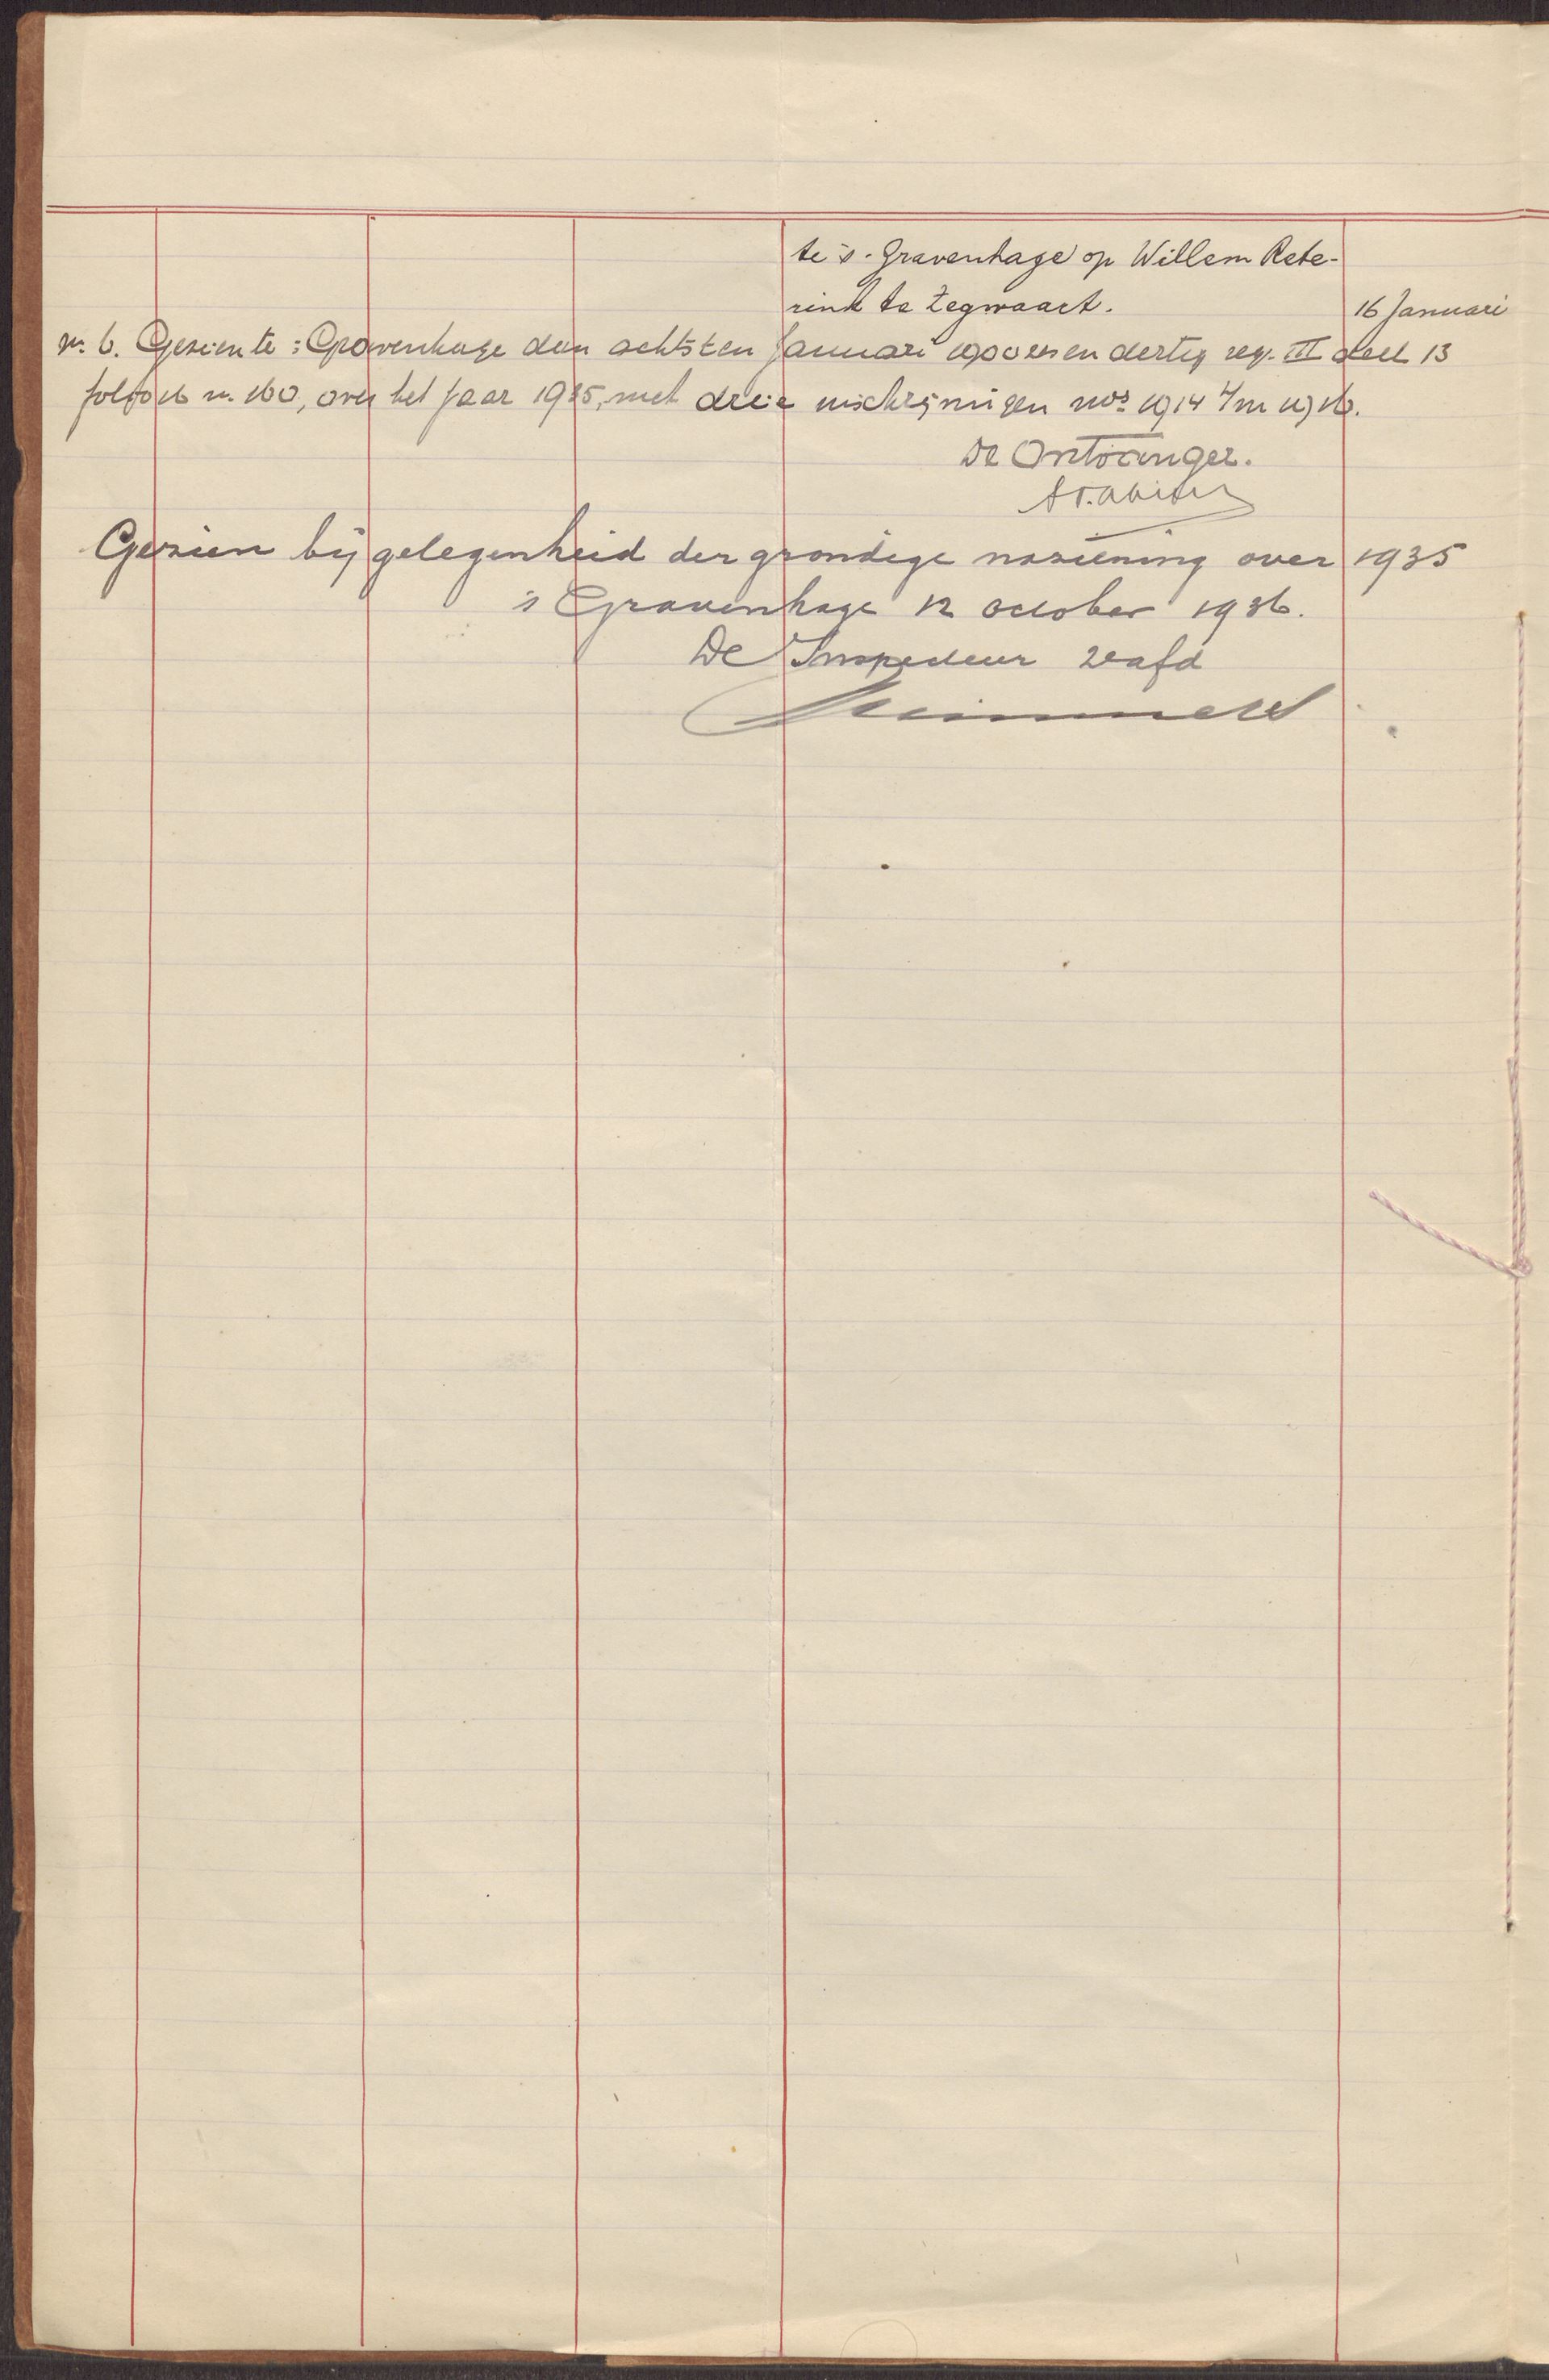 te 's-Gravenhage op Willem Rete-
rink te Zegwaart. 16 Januari
nr. 6. Gezien te 's Gravenhage den achtsten Januari 1900 zes en dertig reg. III deel 13
folio 16 n. 160, over het jaar 1935, met drie inschrijvingen nos 1914 t/m 1916.
De Ontvanger.
Gezien bij gelegenheid der grondige naziening over 1935
's Gravenhage 12 October 1936.
De Inspecteur